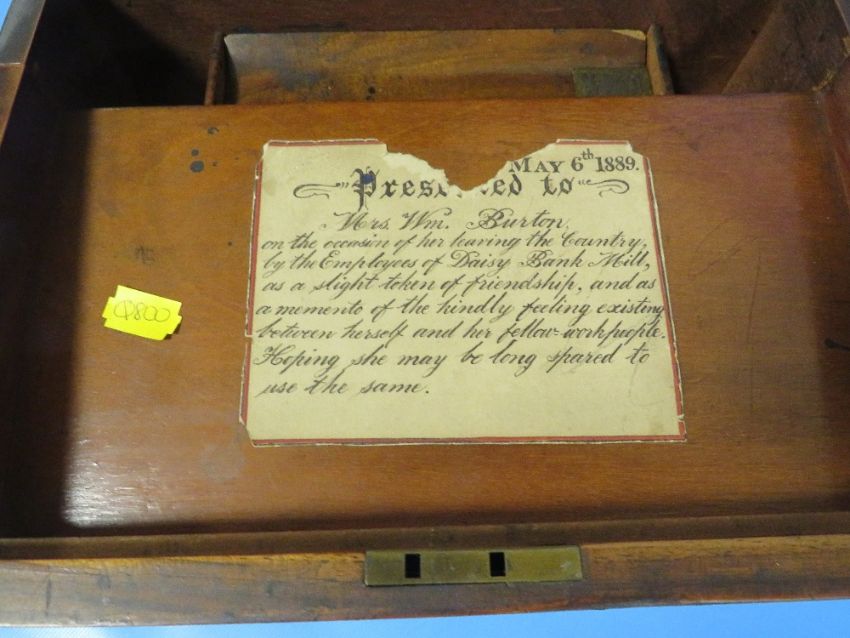 May 6th 1889.
Presented to
Mrs. Wm. Burton,
on the occasion of her leaving the Country,
by the Employees of Daisy Bank Mill,
as a slight token of friendship, and as
a memento of the kindly feeling existing
between herself and her fellow-workpeople.
Hoping she may be long spared to
use the same.